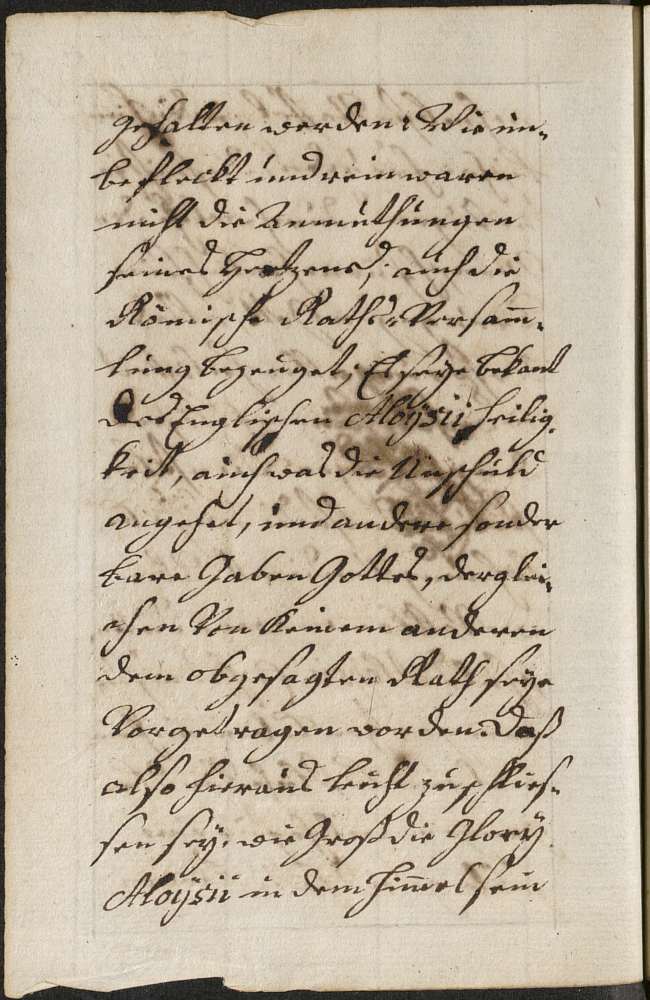 gehalten werden: Wie un-
befleckt und rein waren
nicht die Anmuthungen
seines Hertzens, auch die
Römische Raths-Versam̄-
lung bezeuget; Es seye bekant
des Englischen Aloysii Heilig-
keit, auch was die Unschuld
angehet, und andere sonder
bare Gaben Gottes, derglei-
chen Von Keinem anderen
dem obgesagten Rath seye
Vorgetragen worden. Daß
also hieraus leicht zu schlies-
sen sey, wie Groß die Glory
Aloysii in dem Him̄el sein